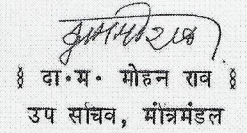 § दा॰म॰ मोहन राव §
उप सचिव, मंत्रिमंडल